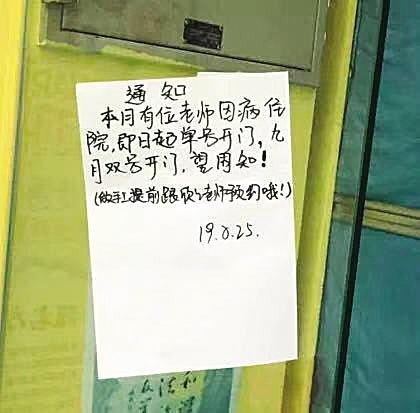 通知
本月有位老师因病住
院,即日起单号开门,九
月双号开门,望周知!
(做手工提前跟欣老师预约哦!)
19.8.25.